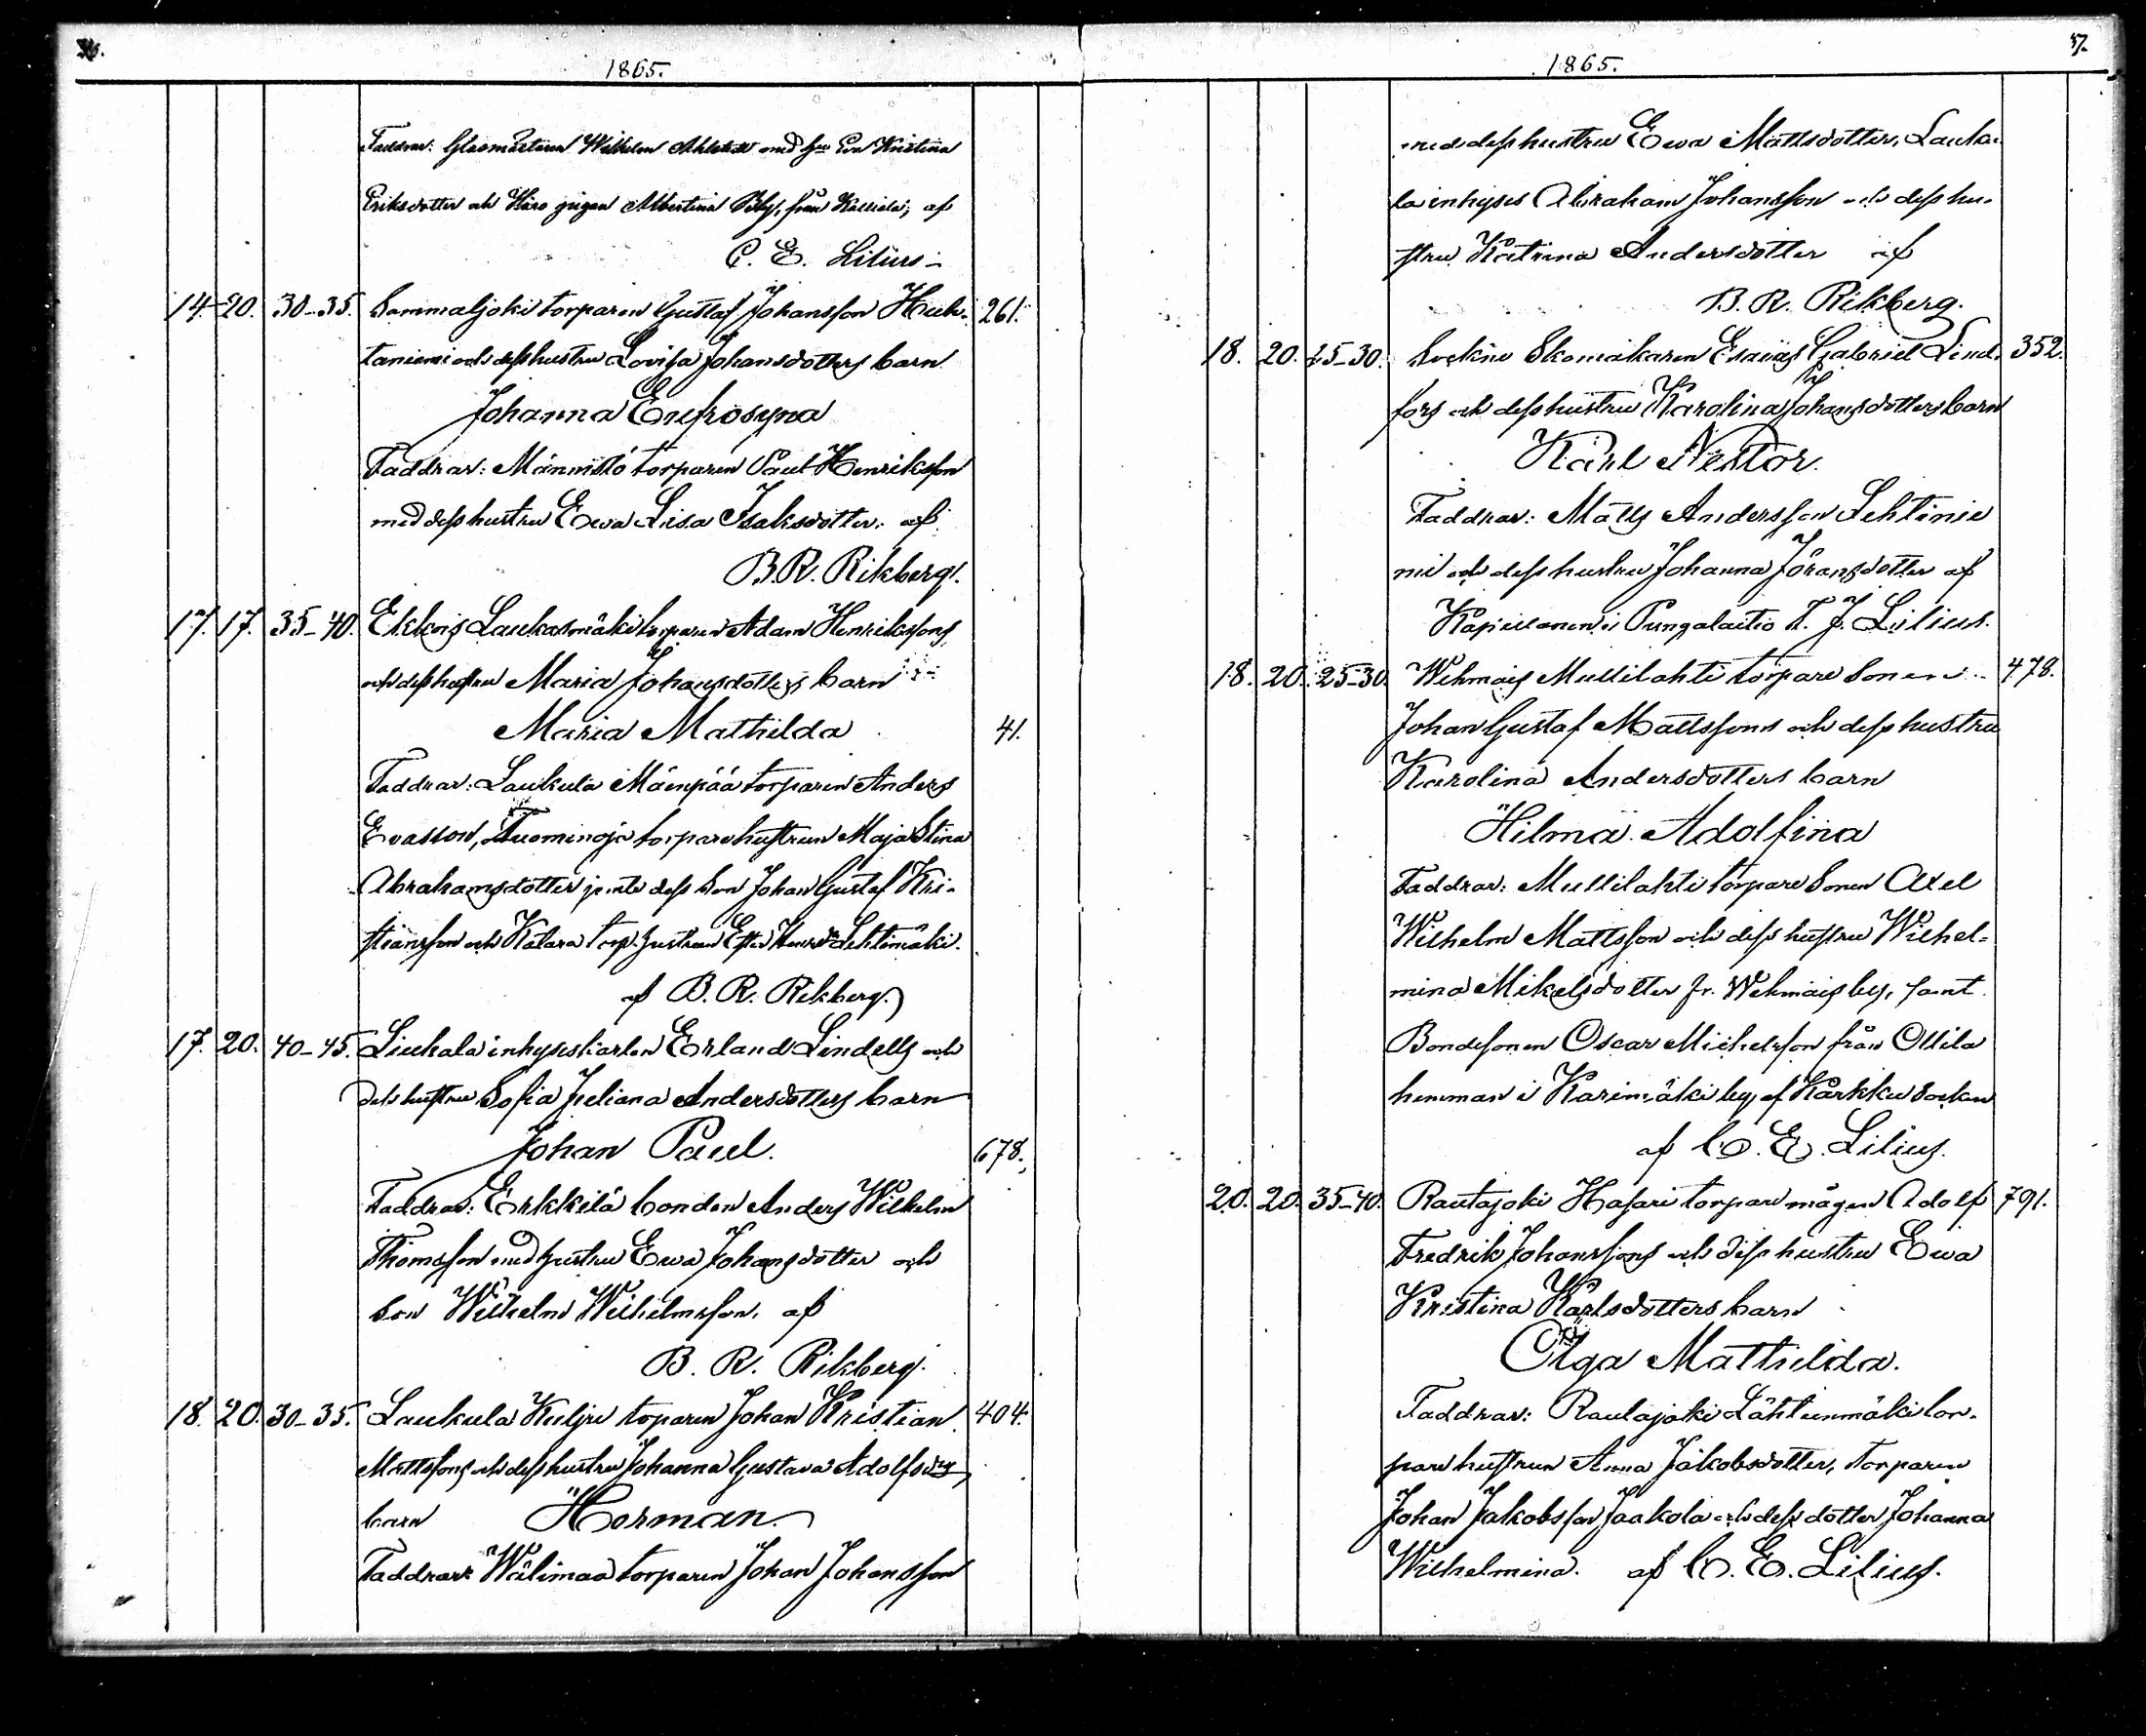 36.
1865.
Faddrar: Glasmästaren Wilhelm Ahlstedt med hu Eva Kristina
Eriksdotter och Kiro pigan Albertina från Kalliala; af
C. E. Lilius
14. 20. 30-35. Sammaljoki torparen Gustaf Johansson Huh- 261.
taniemi och dess hustru Lovisa Johansdotters barn
Johanna Eufrosyna
Faddrar: Männistö torparen Paul Henriksson
med dess hustru Ewa Lisa Isaksdotter. af
B. R. Rikberg.
17. 17. 35-40. Ekkois Laukasmäki torparen Adam Henrikssons
och dess hustru Maria Johansdotters barn
Maria Mathilda 41.
Faddrar: Laukula Mäenpää torparen Anders
Evasson, Tuominoja torparehustrun Maja Stina
Abrahamsdotter jemte dess Son Johan Gustaf Kri-
stiansson och Katara torp. hustrun Ester Lehtimäki.
af B. R. Rikberg.
17. 20. 40-45. Liuhala inhyseskarlen Erland Lindells och
dess hustru Sofia Juliana Andersdotters barn
Johan Paul. 678.
Faddrar: Erkkilä bonden Anders Wilhelm
Thomsson med hustru Ewa Johansdotter och
Son Wilhelm Wilhelmsson. af
B. R. Rikberg.
18. 20. 30-35. Laukula Kulju toparen Johan Kristian 404.
Mattssons och dess hustru Johanna Gustava Adolfsdrs
barn Herman.
Faddrar: Wälimaa torparen Johan Johansson
37.
1865.
med dess hustru Ewa Mattsdotter, Lauku-
la inhyses Abraham Johansson och dess hu-
stru Katrina Andersdotter af
B. R. Rikberg.
18. 20. 25-30. Sockne Skomakaren Esaias Gabriel Lind- 352.
fors och dess hustru Karolina Johansdotters barn
Karl Nestor.
Faddrar: Matts Andersson Lehtinie
mi och dess hustru Johanna Göransdotter af
Kapellanen i Pungalaitio K. J. Lilius.
18. 20. 25-30. Wehmais Mullilahti torpare Sonen 478.
Johan Gustaf Mattssons och dess hustru
Karolina Andersdotters barn
Hilma Adolfina
Faddrar: Mullilahti torpare Sonen Axel
Wilhelm Mattsson och dess hustru Wilhel-
mina Mikelsdotter fr. Wehmais by, samt
Bondesonen Oscar Michelsson från Ollila
hemman i Karimäki by af Karkku Socken
af C. E. Lilius.
20. 20. 35-40. Rautajoki Hasari torpare mågen Adolf 791.
Fredrik Johanssons och dess hustru Ewa
Kristina Karlsdotters barn
Olga Mathilda.
Faddrar: Rautajoki Lähteenmäki tor-
pare hustrun Anna Jakobsdotter, Torparen
Johan Jakobsson Jaakola och dess dotter Johanna
Wilhelmina. af C. E. Lilius.